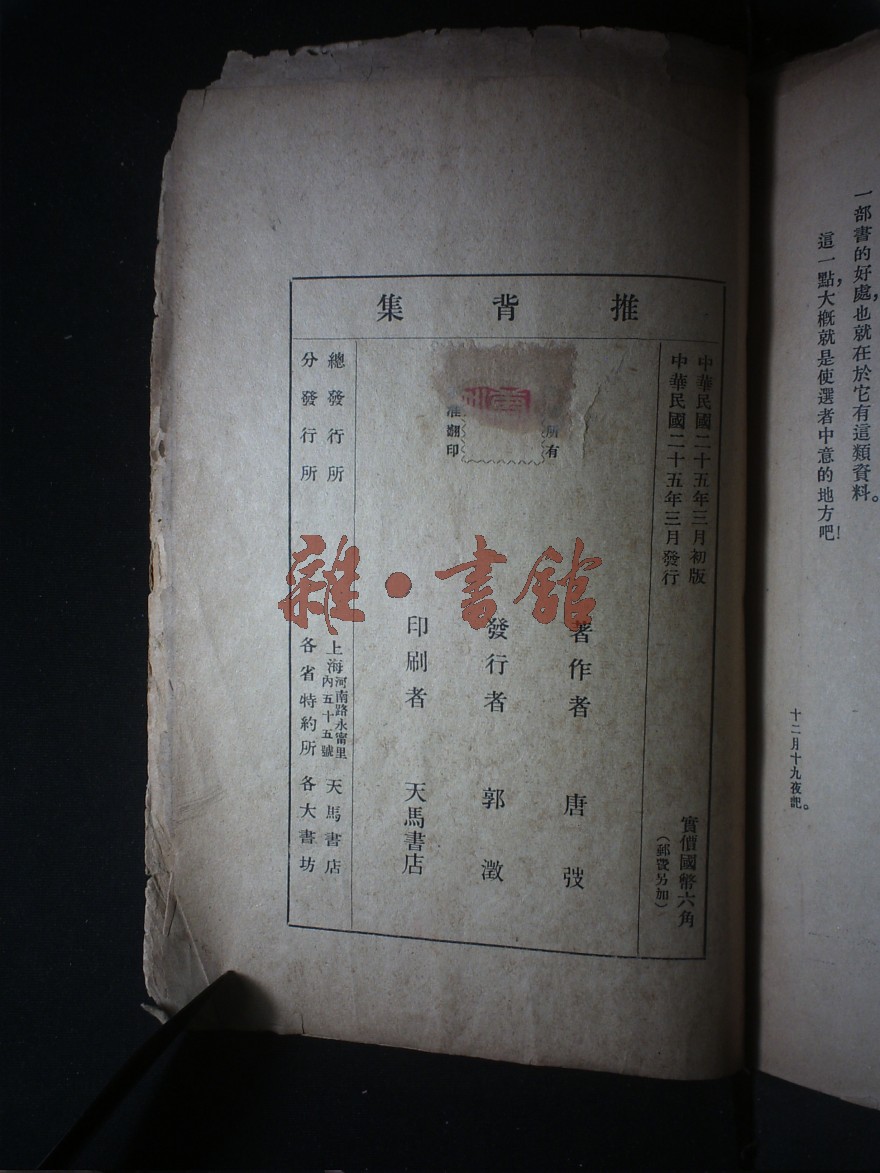 一部書的好處，也就在於它有這類資料。
這一點，大概就是使選者中意的地方吧！
十二月十九夜記。
推背集
中華民國二十五年三月初版
中華民國二十五年三月發行
實價國幣六角
（郵費另加）
所有
准翻印
著作者　唐弢
發行者　郭澂
印刷者　天馬書店
總發行所　上海河南路永甯里內五十五號　天馬書店
分發行所　各省特約所　各大書坊
雜·書館